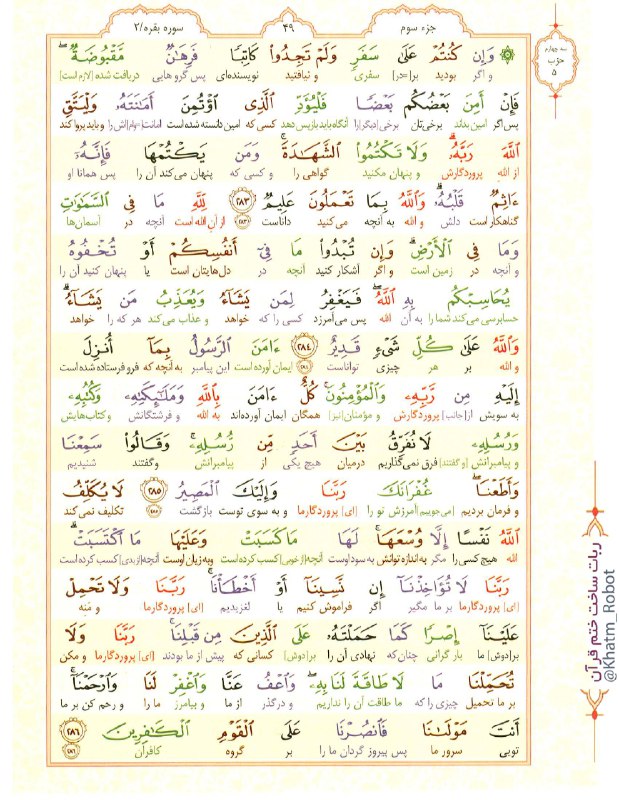 جزء سوم
۴۹
سوره بقره/۲
سه چهارم
حزب
۵
۞ وَإِن كُنتُمْ عَلَىٰ سَفَرٍ وَلَمْ تَجِدُوا۟ كَاتِبًا فَرِهَـٰنٌ مَّقْبُوضَةٌ ۖ
و اگر بودید بر[=در] سفری و نیافتید نویسنده‌ای پس گروهایی دریافت شده [لازم است]
فَإِنْ أَمِنَ بَعْضُكُم بَعْضًا فَلْيُؤَدِّ ٱلَّذِى ٱؤْتُمِنَ أَمَـٰنَتَهُۥ وَلْيَتَّقِ
پس اگر امین بداند برخی‌تان برخی [دیگر] را آنگاه باید بازپس دهد کسی که امین دانسته شده است امانت[=وام]اش را و باید پروا کند
ٱللَّهَ رَبَّهُۥ ۗ وَلَا تَكْتُمُوا۟ ٱلشَّهَـٰدَةَ ۚ وَمَن يَكْتُمْهَا فَإِنَّهُۥٓ
از الله پروردگارش و پنهان مکنید گواهی را و کسی که پنهان می‌کند آن را پس همانا او
ءَاثِمٌ قَلْبُهُۥ ۗ وَٱللَّهُ بِمَا تَعْمَلُونَ عَلِيمٌ ﴿٢٨٣﴾ لِّلَّهِ مَا فِى ٱلسَّمَـٰوَٰتِ
گناهکار است دلش و الله به آنچه می‌کنید داناست ﴿۲۸۳﴾ از آنِ الله است آنچه در آسمان‌ها
وَمَا فِى ٱلْأَرْضِ ۗ وَإِن تُبْدُوا۟ مَا فِىٓ أَنفُسِكُمْ أَوْ تُخْفُوهُ
و آنچه در زمین است و اگر آشکار کنید آنچه در دل‌هایتان است یا پنهان کنید آن را
يُحَاسِبْكُم بِهِ ٱللَّهُ ۖ فَيَغْفِرُ لِمَن يَشَآءُ وَيُعَذِّبُ مَن يَشَآءُ ۗ
حسابرسی می‌کند شما را به آن الله پس می‌آمرزد کسی را که خواهد و عذاب می‌کند هر که را خواهد
وَٱللَّهُ عَلَىٰ كُلِّ شَىْءٍ قَدِيرٌ ﴿٢٨٤﴾ ءَامَنَ ٱلرَّسُولُ بِمَآ أُنزِلَ
و الله بر هر چیزی تواناست ﴿۲۸۴﴾ ایمان آورده است این پیامبر به آنچه که فرو فرستاده شده است
إِلَيْهِ مِن رَّبِّهِۦ وَٱلْمُؤْمِنُونَ ۚ كُلٌّ ءَامَنَ بِٱللَّهِ وَمَلَـٰٓئِكَتِهِۦ وَكُتُبِهِۦ
به سویش از[جانب] پروردگارش و مؤمنان[نیز] همگان ایمان آورده‌اند به الله و فرشتگانش و کتاب‌هایش
وَرُسُلِهِۦ لَا نُفَرِّقُ بَيْنَ أَحَدٍ مِّن رُّسُلِهِۦ ۚ وَقَالُوا۟ سَمِعْنَا
و پیامبرانش [و گفتند] فرق نمی‌گذاریم درمیان هیچ یکی از پیامبرانش و گفتند شنیدیم
وَأَطَعْنَا ۖ غُفْرَانَكَ رَبَّنَا وَإِلَيْكَ ٱلْمَصِيرُ ﴿٢٨٥﴾ لَا يُكَلِّفُ
و فرمان بردیم [می‌جوییم] آمرزش تو را [ای] پروردگارما و به سوی توست بازگشت ﴿۲۸۵﴾ تکلیف نمی‌کند
ٱللَّهُ نَفْسًا إِلَّا وُسْعَهَا ۚ لَهَا مَا كَسَبَتْ وَعَلَيْهَا مَا ٱكْتَسَبَتْ ۗ
الله هیچ کسی را مگر به اندازه توانش به سود اوست آنچه[از خوبی] کسب کرده است و به زیان اوست آنچه[از بدی] کسب کرده است
رَبَّنَا لَا تُؤَاخِذْنَآ إِن نَّسِينَآ أَوْ أَخْطَأْنَا ۚ رَبَّنَا وَلَا تَحْمِلْ
[ای] پروردگارما بر ما مگیر اگر فراموش کنیم یا لغزیدیم [ای] پروردگارما و مَنِه
عَلَيْنَآ إِصْرًا كَمَا حَمَلْتَهُۥ عَلَى ٱلَّذِينَ مِن قَبْلِنَا ۚ رَبَّنَا وَلَا
بر[دوش] ما بار گرانی چنان‌که نهادی آن را بر[دوش] کسانی که پیش از ما بودند [ای] پروردگارما و مکن
تُحَمِّلْنَا مَا لَا طَاقَةَ لَنَا بِهِۦ ۖ وَٱعْفُ عَنَّا وَٱغْفِرْ لَنَا وَٱرْحَمْنَآ ۚ
بر ما تحمیل چیزی را که ما طاقت آن را نداریم و درگذر از ما و بیامرز ما را و رحم کن بر ما
أَنتَ مَوْلَىٰنَا فَٱنصُرْنَا عَلَى ٱلْقَوْمِ ٱلْكَـٰفِرِينَ ﴿٢٨٦﴾
تویی سرور ما پس پیروز گردان ما را بر گروه کافران ﴿۲۸۶﴾
ربات ساخت ختم قرآن
@Khatm_Robot